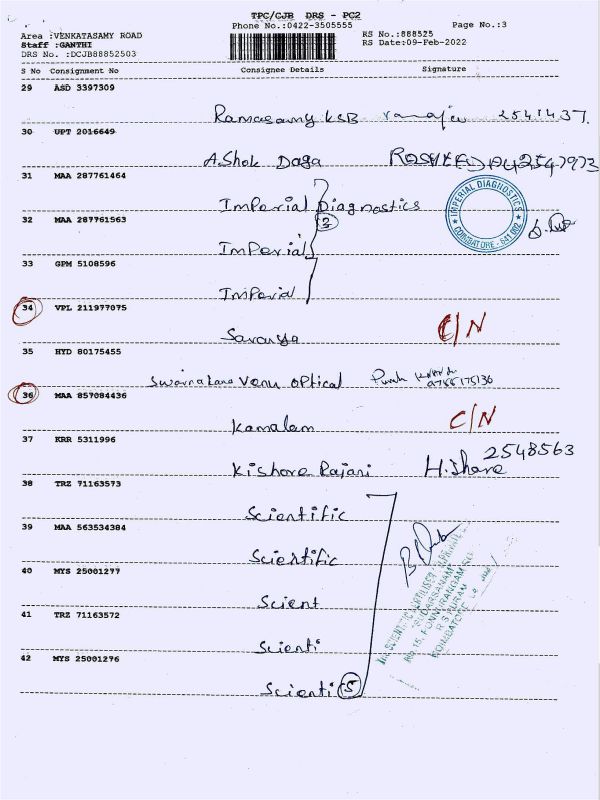 TPC/CJB DRS - PC2
Phone No.:0422-3505555
Page No.:3
Area :VENKATASAMY ROAD
RS No.:888525
Staff :GANTHI
RS Date:09-Feb-2022
DRS No. :DCJB88852503
S No Consignment No Consignee Details Signature
29 ASD 3397309
Ramasamy KSB 2541437.
30 UPT 2016649
AShok Daga 2547973
31 MAA 287761464
Imperial Diagnostics
IMPERIAL DIAGNOSTICS
COIMBATORE - 641 002
32 MAA 287761563
3
Imperial
33 GPM 5108596
Imperial
34 VPL 211977075
Saranya C/N
35 HYD 80175455
Venu optical
36 MAA 857084436
Kamalam C/N
37 KRR 5311996
Kishore Rajani H.Share 2548563
38 TRZ 71163573
Scientific
39 MAA 563534384
Scientific
40 MYS 25001277
Scient
41 TRZ 71163572
Scienti
42 MYS 25001276
Scienti 5
"SUDARSANAM"
No.15, PONNURANGAM
R S PURAM
COIMBATORE